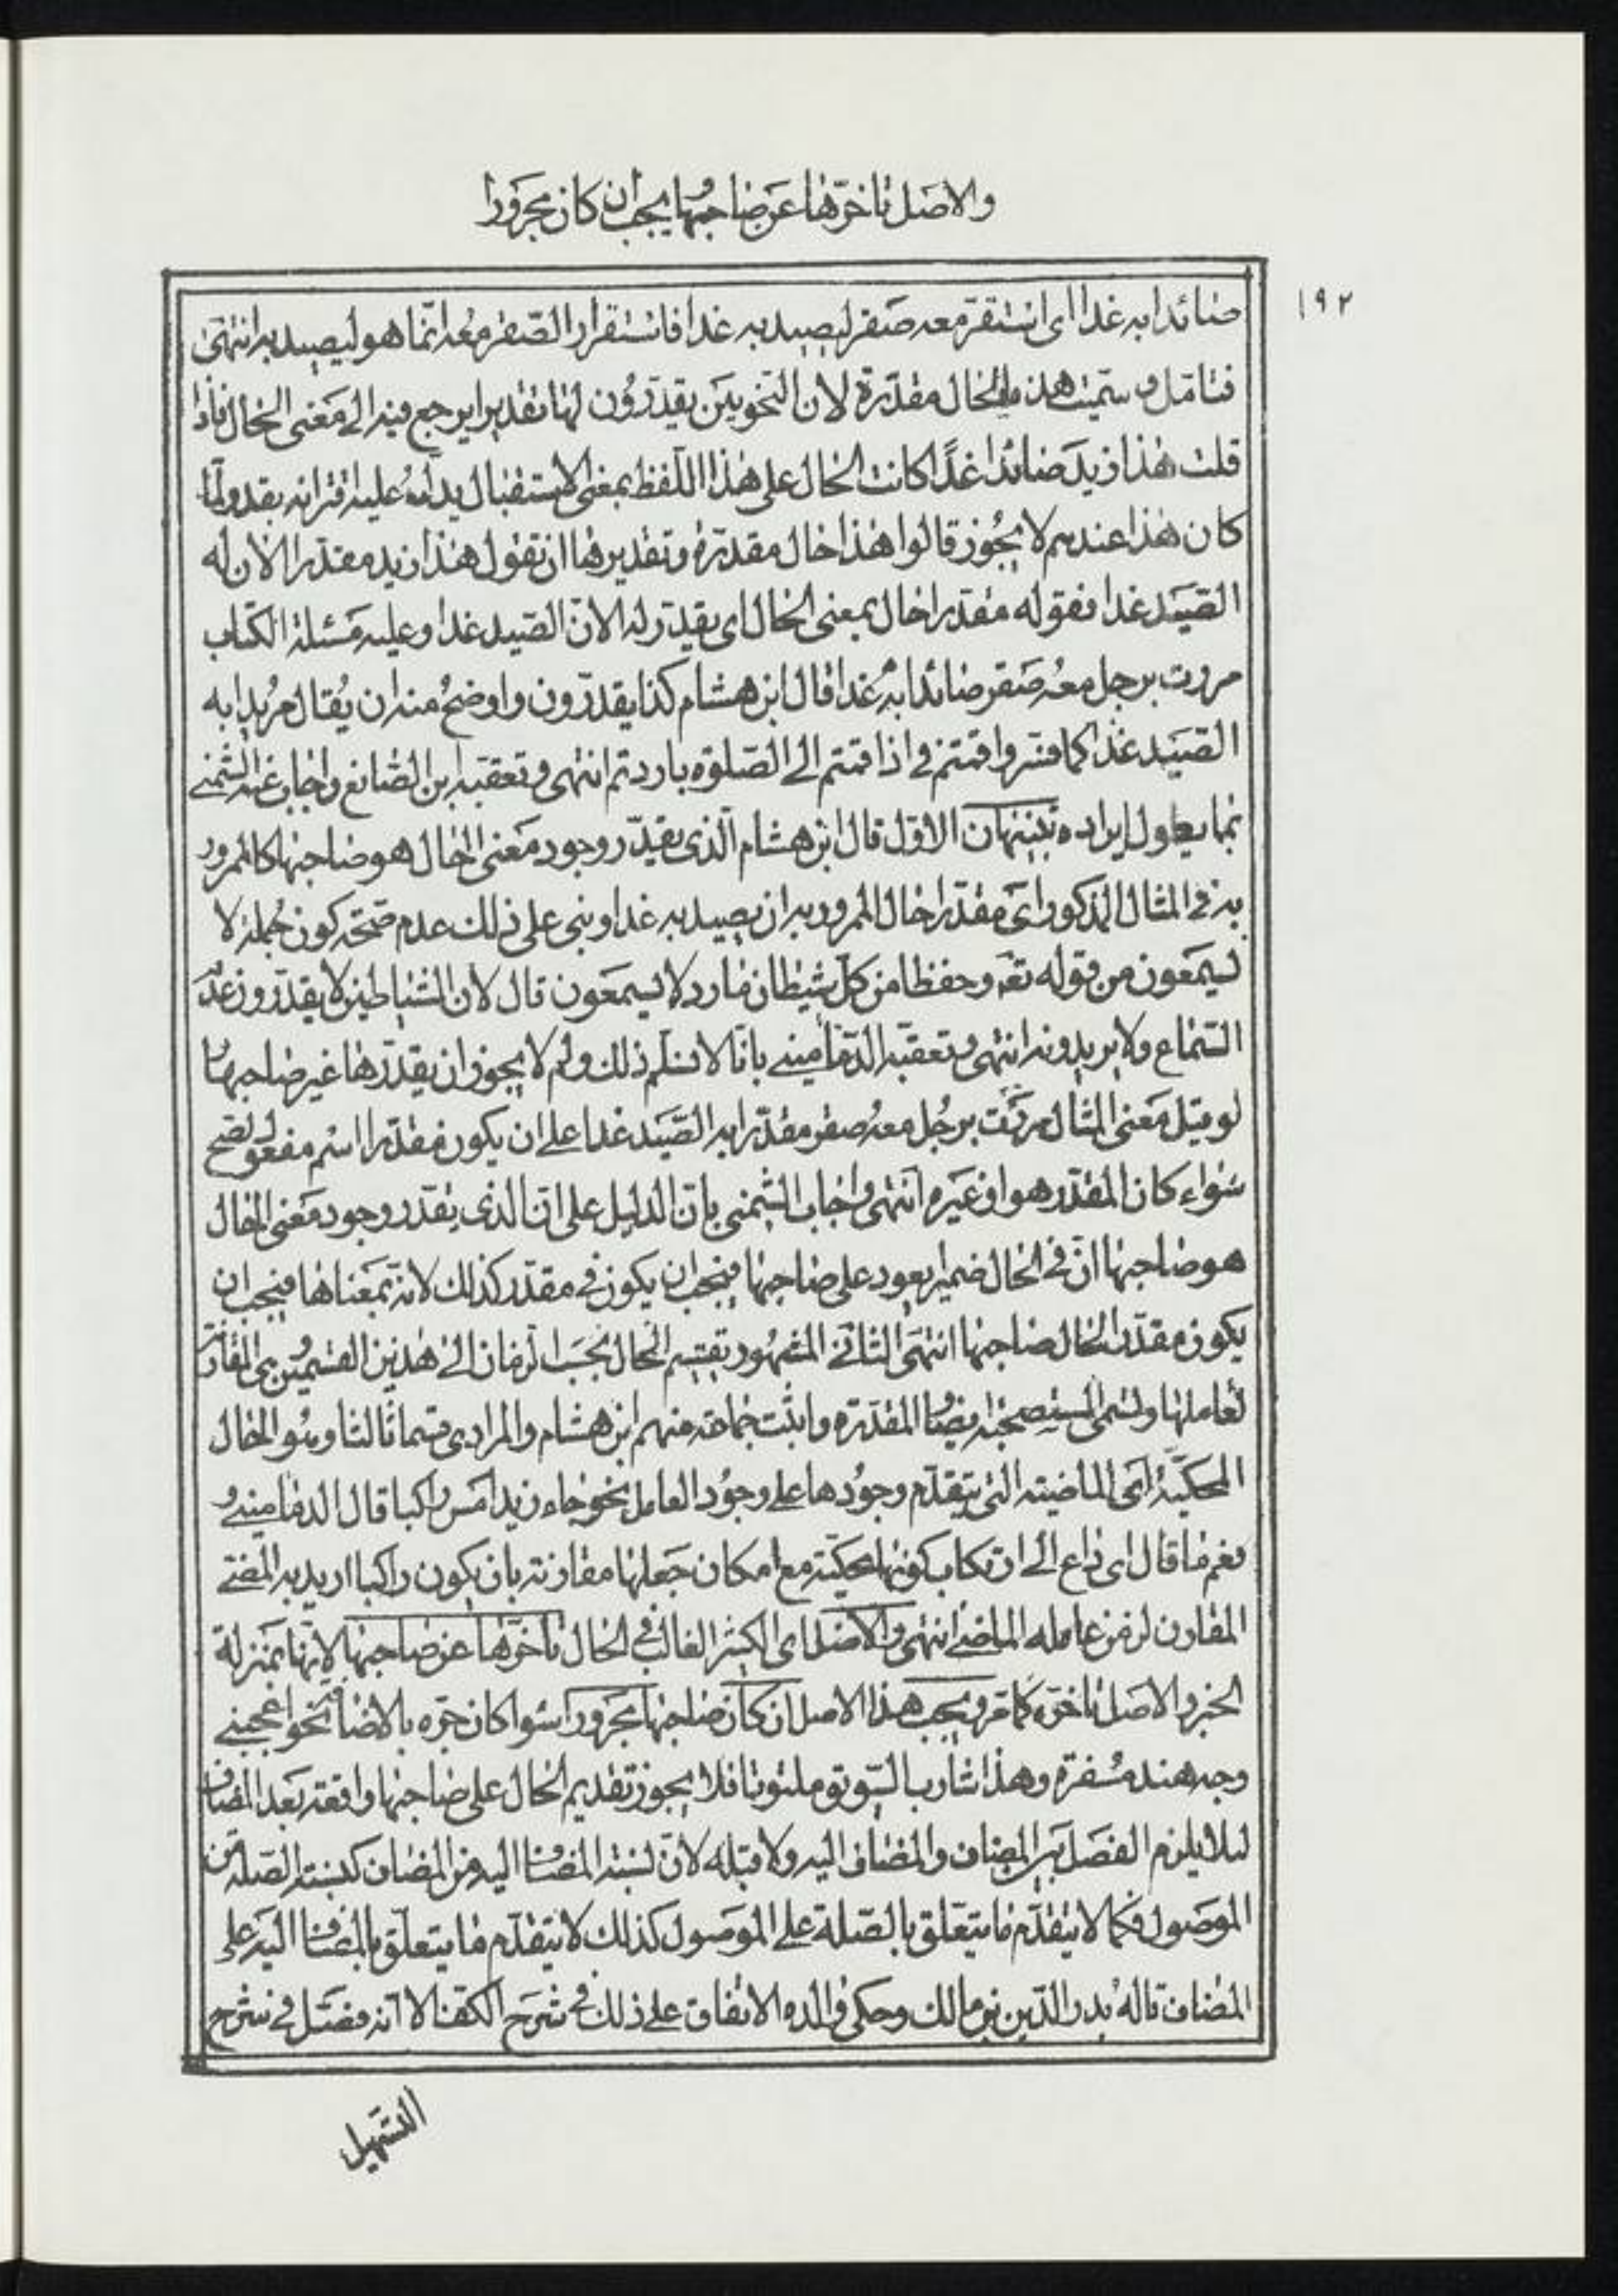 والاصل تاخرها عن صاحبها ويجب ان كان مجرورا
١٩٢
صائدا به غدا اى استقر معه صقر ليصيد به غدا فاستقرار الصقر معه انما هو ليصيد به انتهى
فتامل وسميت هذه الحال مقدرة لان النحويين يقدرون لها تقديرا يرجع فيه الى معنى الحال فاذا
قلت هذا زيد صائدا غدًا كانت الحال على هذا اللفظ بمعنى الاستقبال يدلك عليه اقترانه بغد ولما
كان هذا عندهم لا يجوز قالوا هذا حال مقدرة وتقديرها ان تقول هذا زيد مقدرا الان له
الصيد غدا فقوله مقدرا حال بمعنى الحال اى يقدر له الان الصيد غدا وعليه مسئلة الكتاب
مررت برجل معه صقر صائدا به غدا قال ابن هشام كذا يقدرون واوضح منه ان يقال مريدا به
الصيد غدا كما فسروا قمتم فى اذا قمتم الى الصلوة باردتم انتهى وتعقبه ابن الصائغ واجاب عنه الشمنى
بما يطول ايراده تنبيهان الاول قال ابن هشام الذى يقدر وجود معنى الحال هو صاحبها كالممرور
به فى المثال المذكور اى مقدرا حال المرور به ان يصيد به غدا وبنى على ذلك عدم صحة كون جملة لا
يسمعون من قوله تعه وحفظا من كل شيطان مارد لا يسمعون قال لان الشياطين لا يقدرون عدم
السماع ولا يريدونه انتهى وتعقبه الدمامينى بانا لا نسلم ذلك ولم لا يجوز ان يقدرها غير صاحبها
لو قيل معنى المثال مررت برجل معه صقر مقدرا به الصيد غدا على ان يكون مقدرا اسم مفعول لصح
سواء كان المقدر هو او غيره انتهى واجاب الشمنى بان الدليل على ان الذى يقدر وجود معنى الحال
هو صاحبها ان فى الحال ضميرا يعود على صاحبها فيجب ان يكون فى مقدر كذلك لانه بمعناها فيجب ان
يكون مقدر الحال صاحبها انتهى الثانى المشهور تقسيم الحال بحسب الزمان الى هذين القسمين اى المقارنة
لعاملها وتسمى المستصحبة ايضا والمقدرة واثبت جماعة منهم ابن هشام والمرادى قسما ثالثا وهو الحال
المحكية اى الماضية التى يتقدم وجودها على وجود العامل نحو جاء زيد امس راكبا قال الدمامينى و
نعم ما قال اى داع الى ارتكاب كونها محكية مع امكان جعلها مقارنة بان يكون راكبا اريد به المضى
المقارن لزمن عامله الماضى انتهى والاصل اى الكثير الغالب فى الحال تاخرها عن صاحبها لانها بمنزلة
الخبر والاصل تاخره كما مر ويجب هذا الاصل ان كان صاحبها مجرورا سواء كان جره بالاضافة نحو اعجبنى
وجه هند مسفرة وهذا شارب السويق ملتوتا فلا يجوز تقديم الحال على صاحبها واقعة بعد المضاف
لئلا يلزم الفصل بين المضاف والمضاف اليه ولا قبله لان نسبة المضاف اليه من المضاف كنسبة الصلة من
الموصول فكما لا يتقدم ما يتعلق بالصلة على الموصول كذلك لا يتقدم ما يتعلق بالمضاف اليه على
المضاف قاله بدر الدين بن مالك وحكى والده الاتفاق على ذلك فى شرح الكفا الا انه فصل فى شرح
التسهيل